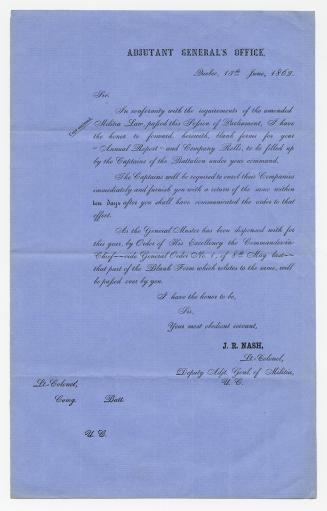 ADJUTANT GENERAL'S OFFICE,
Quebec, 13th June, 1862.
Sir,
In conformity with the requirements of the amended
Militia Law, passed this Session of Parliament, I have
the honor to forward, herewith, blank forms for your
"Annual Report" and Company Rolls, to be filled up
by the Captains of the Battalion under your command.
The Captains will be required to enrol their Companies
immediately and furnish you with a return of the same within
ten days after you shall have communicated the order to that
effect.
As the General Muster has been dispensed with for
this year, by Order of His Excellency the Commander-in-
Chief—vide General Order No. 1, of 8th May last—
that part of the Blank Form which relates to the same, will
be passed over by you.
I have the honor to be,
Sir,
Your most obedient servant,
J. R. NASH,
Lt-Colonel,
Deputy Adjt. Genl. of Militia,
U. C.
Lt-Colonel,
Comg. Batt.
U. C.